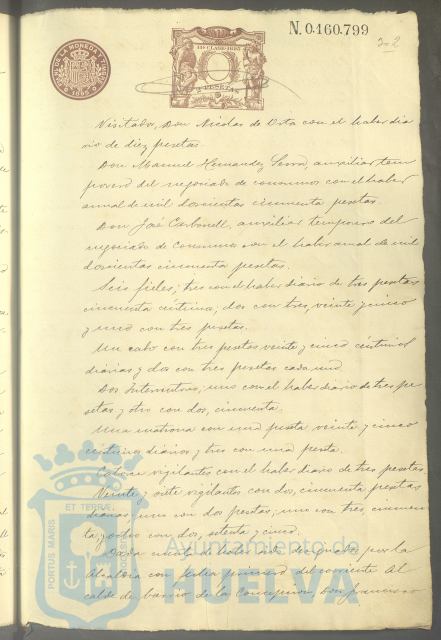 N.0.160.799
302
11ª CLASE-1885
2 PESETAS
1885
Visitador, Don Nicolas de Orta con el haber dia
rio de diez pesetas.
Don Manuel Hernandez Serra, auxiliar tem
porero del negociado de consumos con el haber
anual de mil doscientas cincuenta pesetas.
Don José Carbonell, auxiliar temporero del
negociado de Consumos con el haber anual de mil
doscientas cincuenta pesetas.
Seis fieles; tres con el haber diario de tres pesetas
cincuenta céntimos; dos con tres, veinte y cinco
y uno con tres pesetas.
Un cabo con tres pesetas veinte y cinco céntimos
diarias y dos con tres pesetas cada uno.
Dos Interventores; uno con el haber diario de tres pe
setas y otro con dos, cincuenta.
Una matrona con una peseta veinte y cinco
céntimos diarios y tres con una peseta.
Catorce vigilantes con el haber diario de tres pesetas.
Veinte y siete vigilantes con dos, cincuenta pesetas
diarias uno con dos pesetas; uno con tres cincuen
ta y otro con dos, setenta y cinco.
Dada cuenta de haber sido designado por la
Alcaldía con fecha primero del corriente Al
calde de barrio de la Concepcion, Don Francisco
PORTUS MARIS
ET TERRÆ
CUSTODIA
Ayuntamiento de
HUELVA